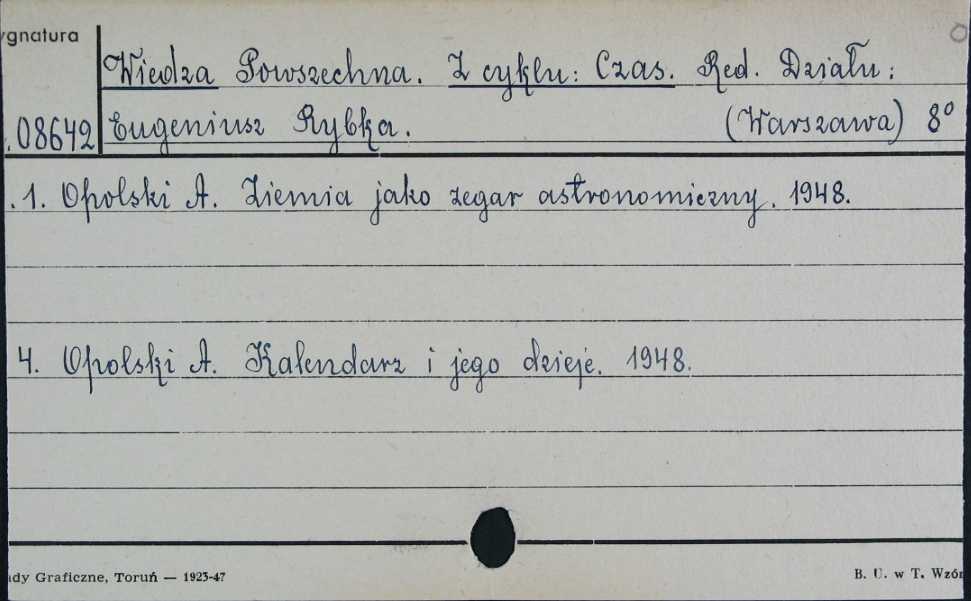 ygnatura
Wiedza Powszechna. Z cyklu: Czas. Red. Działu:
08642 Eugeniusz Rybka. (Warszawa) 8°
1. Opolski A. Ziemia jako zegar astronomiczny. 1948.
4. Opolski A. Kalendarz i jego dzieje. 1948.
dy Graficzne, Toruń — 1923-47
B. U. w T. Wzór